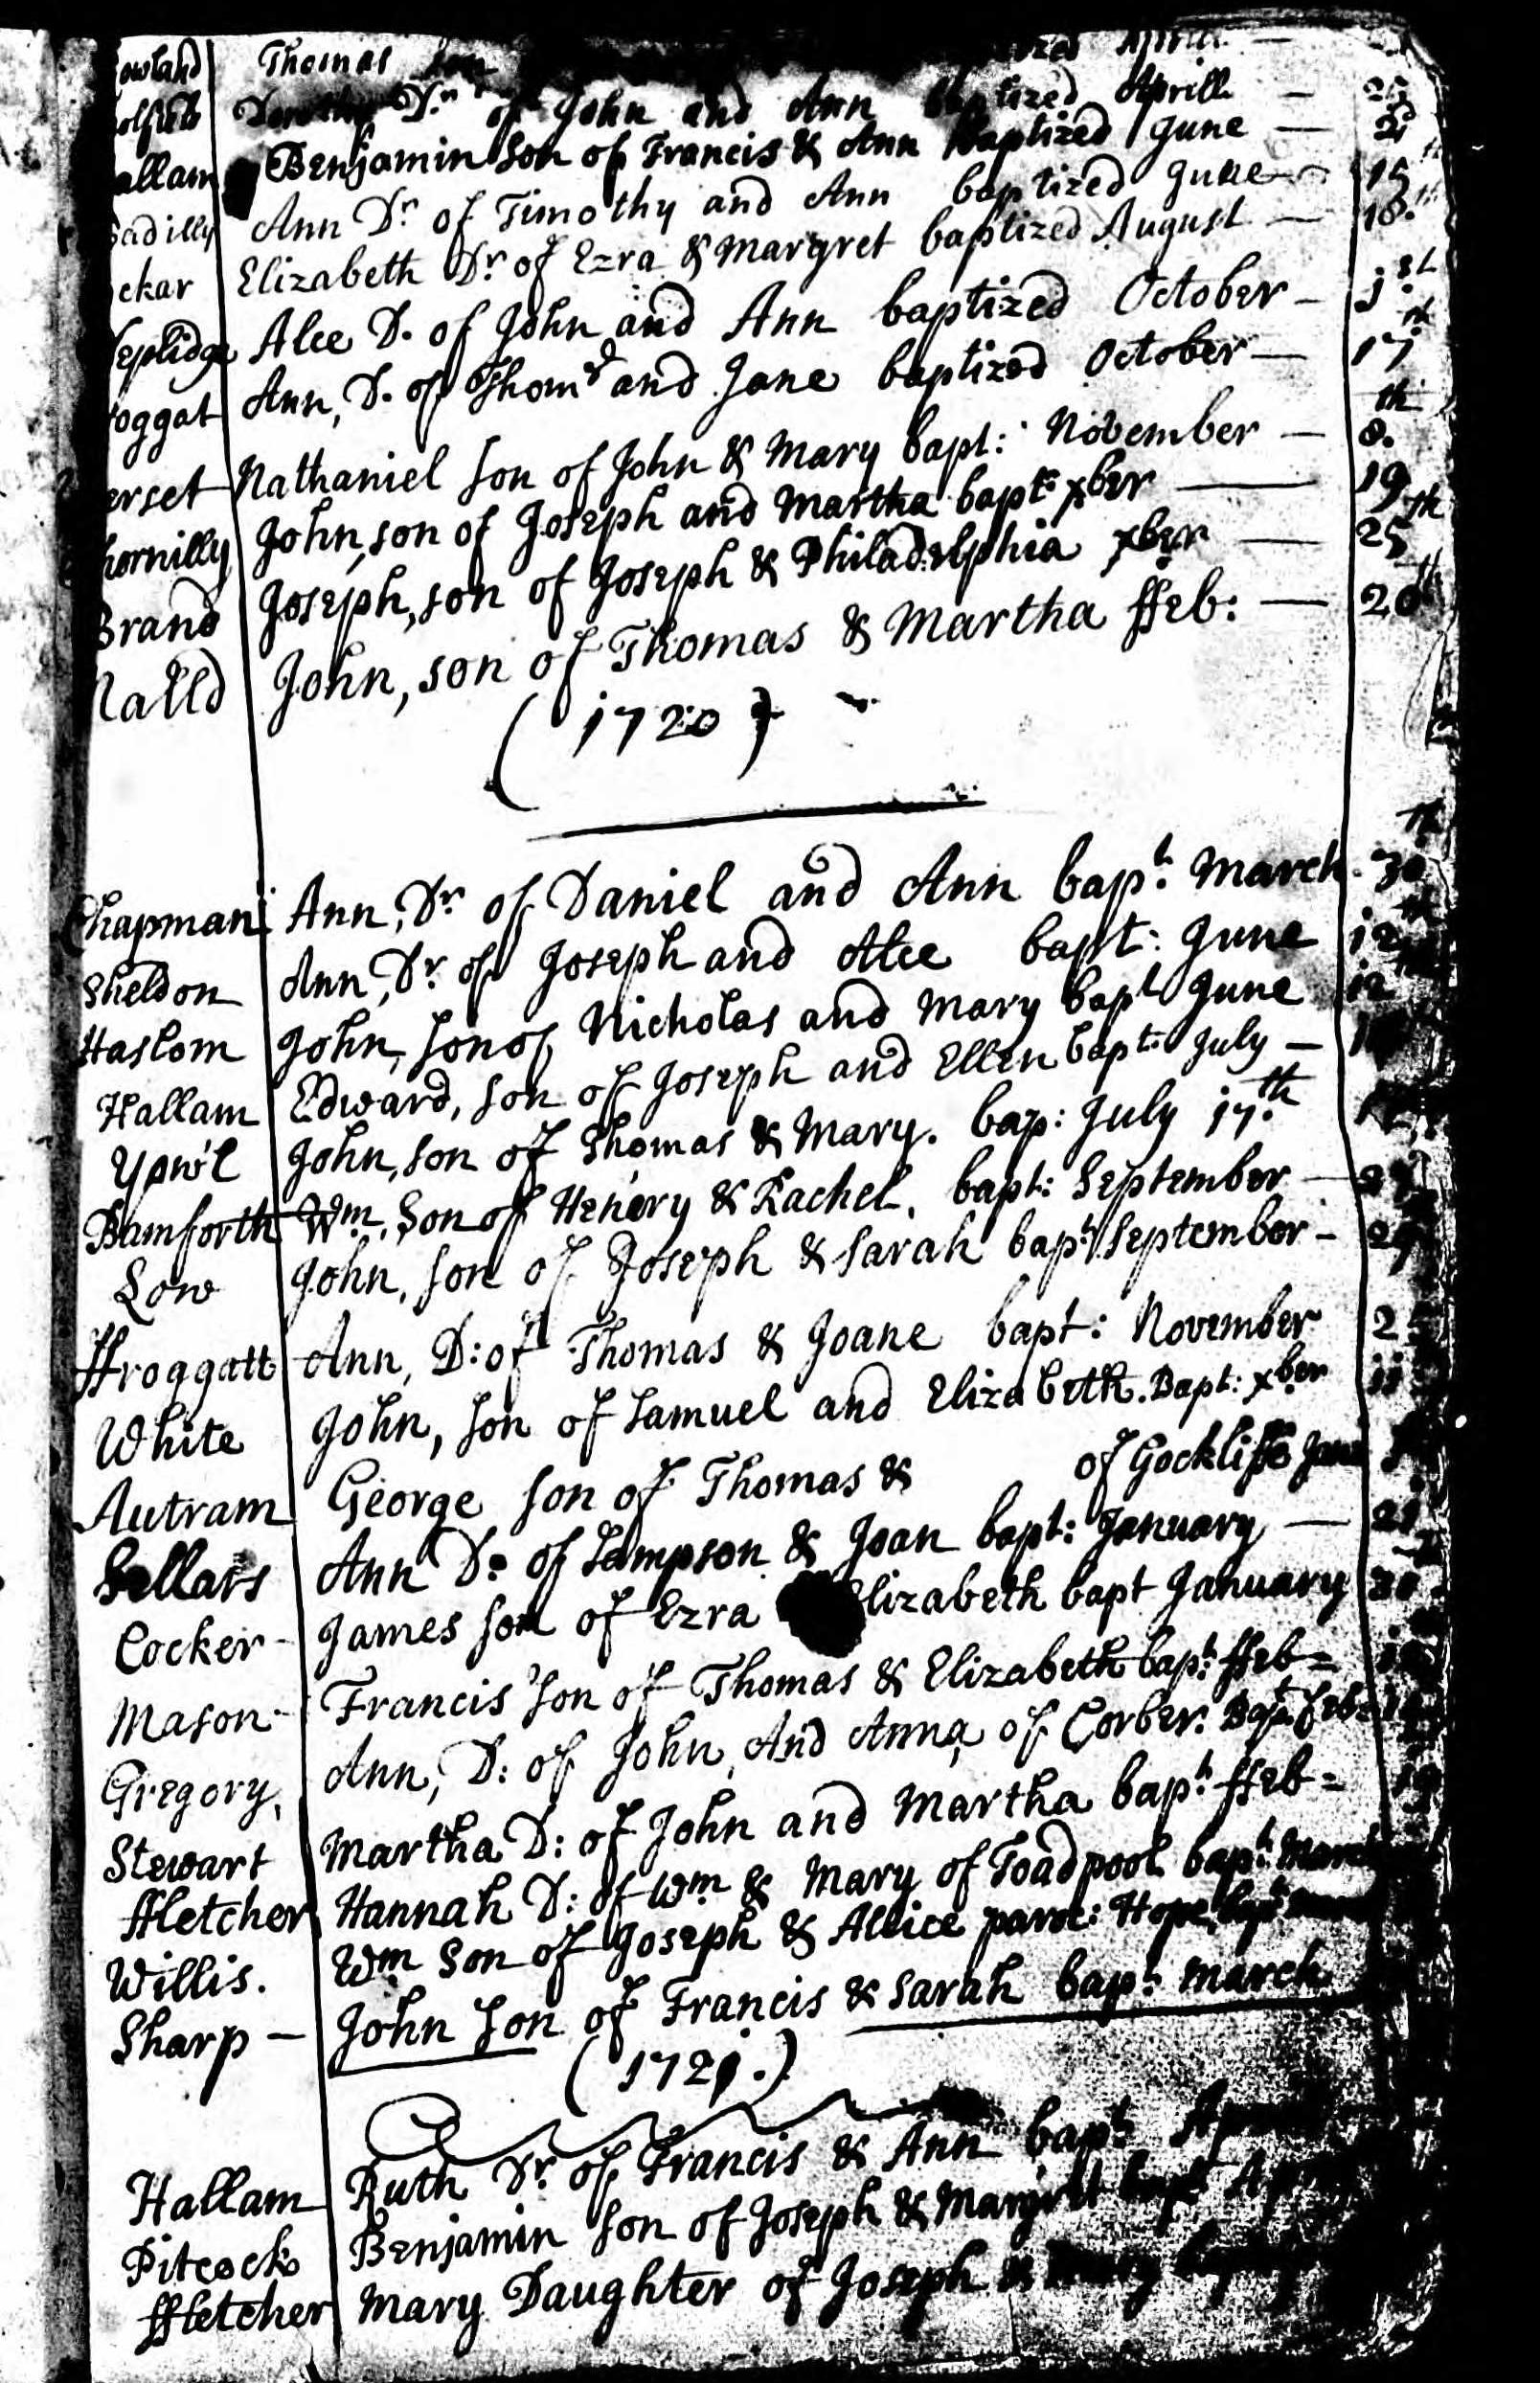 owland Thomas Son
Dorothy Dr. of John and Ann baptized Aprill
allam Benjamin Son of Francis & Ann Baptized June
adilly Ann Dr of Timothy and Ann baptized June 15th
ckar Elizabeth Dr of Ezra & Margret baptized August 18th
eplidge Alce D. of John and Ann baptized October 1st
oggat Ann, D. of Thoms and Jane baptized October 17th
erset Nathaniel son of John & Mary bapt: November 8th
hornilly John, son of Joseph and Martha bapt: xber 19
Brand Joseph, son of Joseph & Philadelphia xber 25th
John, son of Thomas & Martha ffeb: 20th
(1720)
Chapman Ann, Dr of Daniel and Ann bapt: March 30th
Sheldon Ann, Dr of Joseph and Alce bapt: June 12th
Haslom John, Son of Nicholas and Mary bapt June 12th
Hallam Edward, son of Joseph and Ellen bapt: July
John, son of Thomas & Mary. bap: July 17th
Bamforth Wm, Son of Henery & Rachel. bapt: September
Low John, son of Joseph & Sarah bapt: September
ffroggatt Ann, D: of Thomas & Joane bapt: November
White John, son of Samuel and Elizabeth. Bapt: xber 11
Autram George son of Thomas & of Gockliffe
Sellars Ann D: of Sampson & Joan bapt: January 21
Cocker James son of Ezra Elizabeth bapt January 30
Mason Francis son of Thomas & Elizabeth bapt: ffeb
Gregory, Ann, D: of John, And Anna, of Corber. Bapt: feb:
Stewart Martha D: of John and Martha bapt: ffeb
ffletcher Hannah D: of Wm & Mary of Toadpool bapt: March
Willis. Wm Son of Joseph & Allice paroc: Hope
Sharp John son of Francis & Sarah bapt: march
(1721.)
Hallam Ruth Dr of Francis & Ann bapt:
Pitcock Benjamin son of Joseph &
ffletcher Mary Daughter of Joseph &